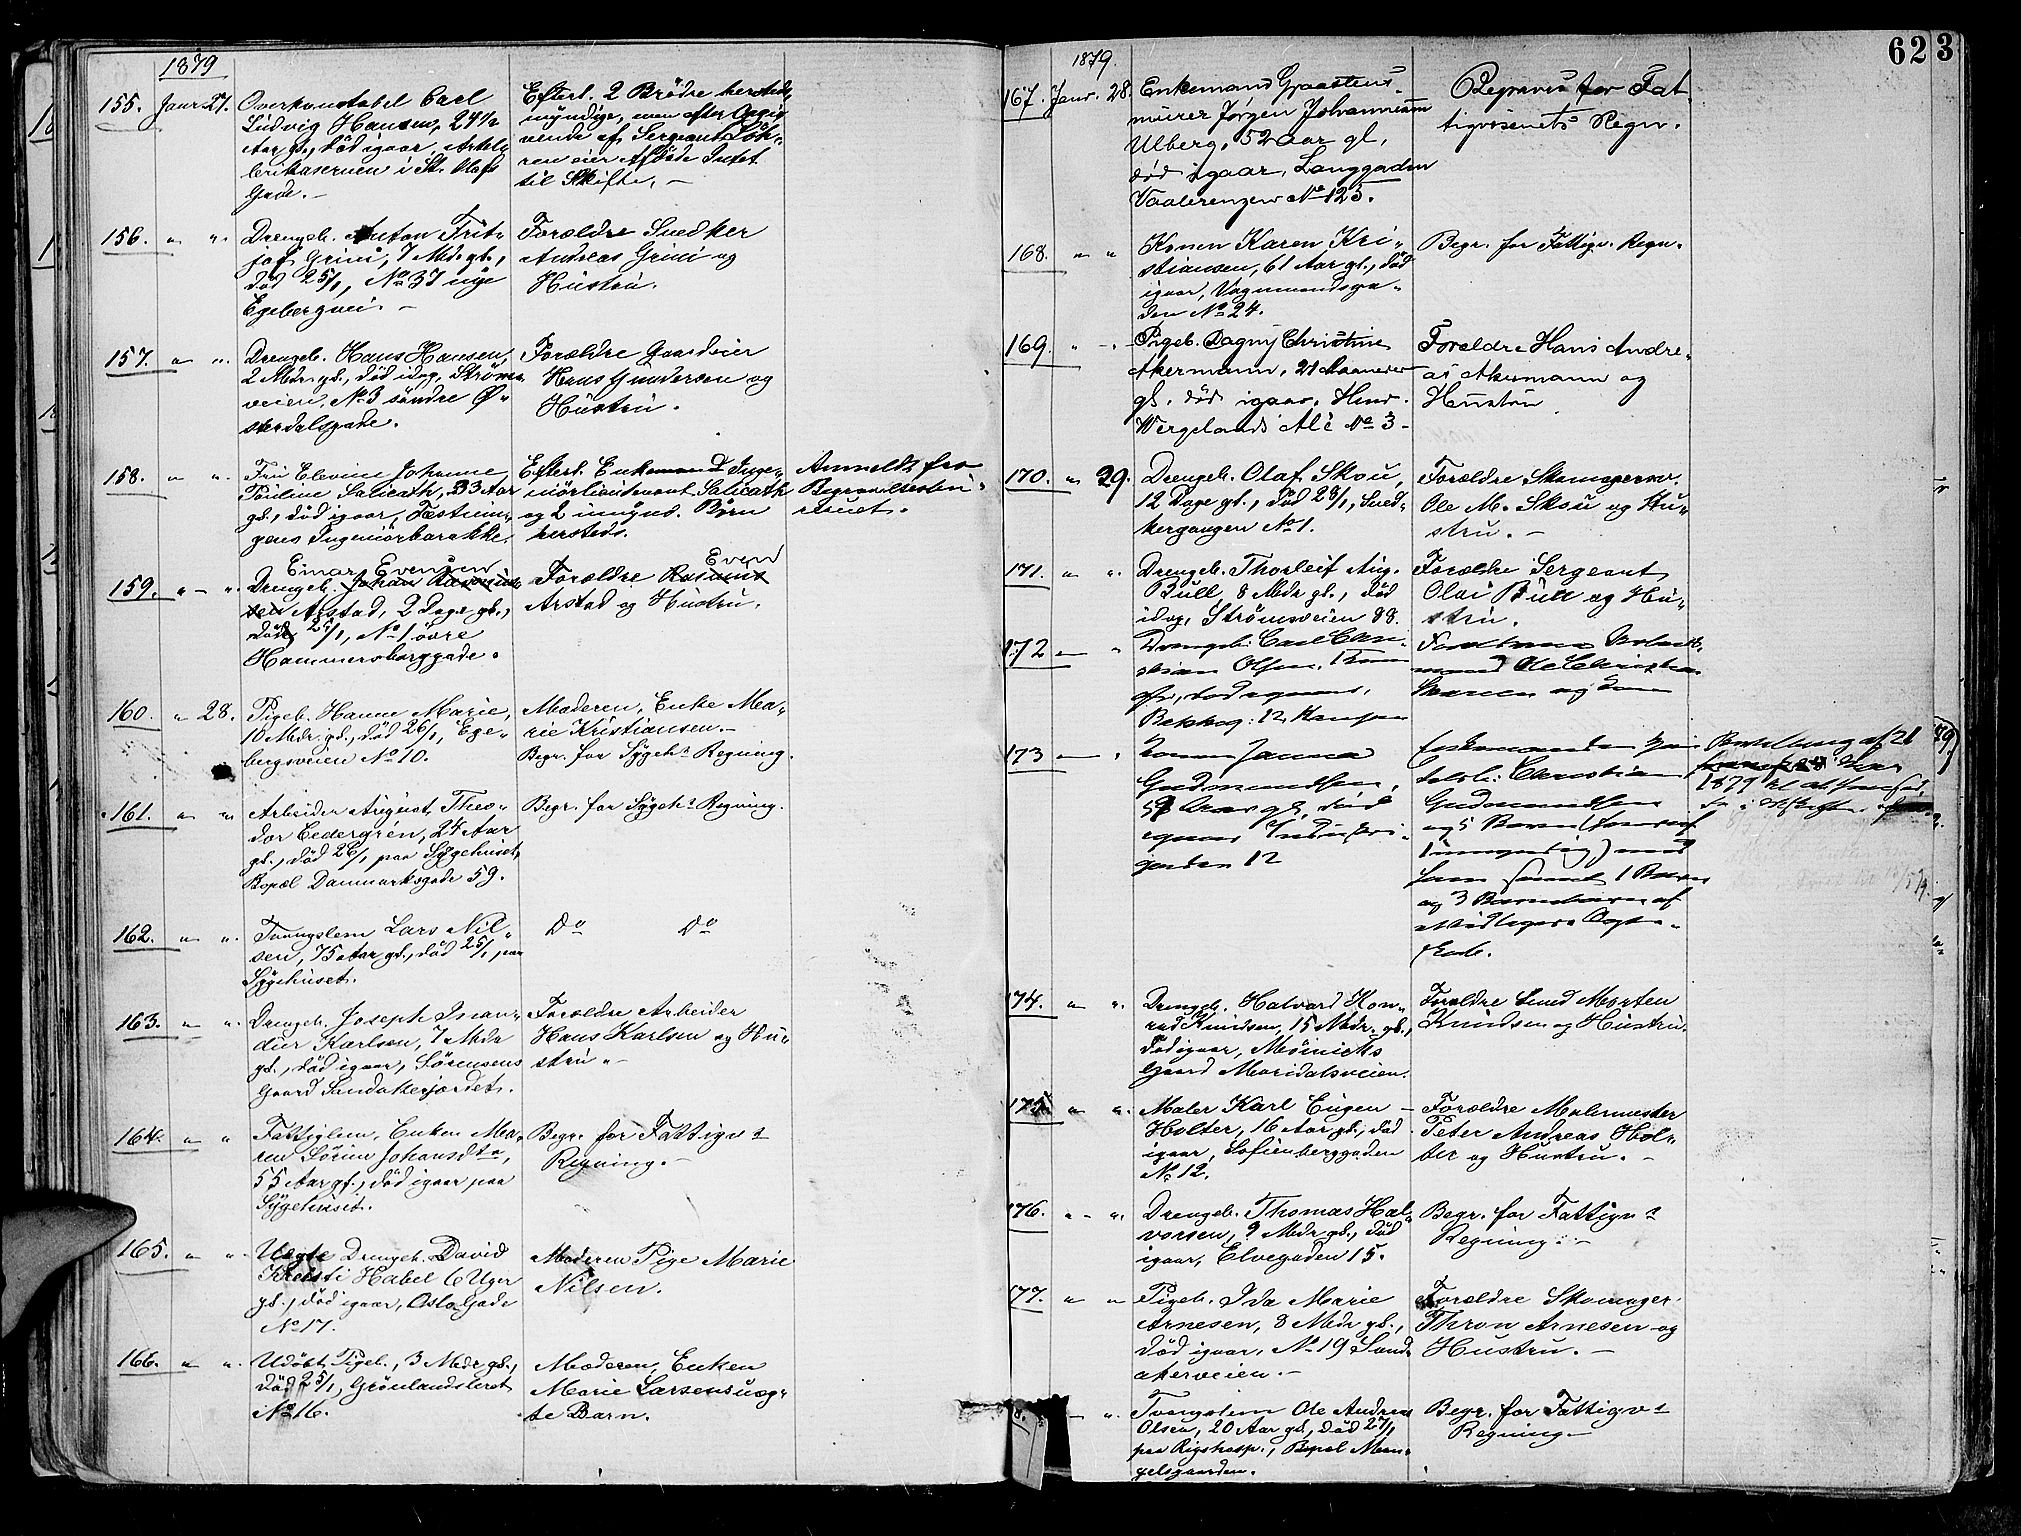 1879
155. Janr. 27. Overkonstabel Carl
Ludvig Hansen, 24½
Aar gl., död igaar, Artil-
lerikasernen i St. Olafs
Gade. –
Efterl. 2 Brödre hersteds,
myndige, men efter Opgi-
vende af Sergeant
eier Afdöde Intet
til Skifte. –
156. " " Drengeb. Anton Frit-
jof Grini, 7 Mdr. gl.,
död 25/1, No 37 nye
Egebergvei. –
Forældre Snedker
Andreas Grini og
Hustru.
157. " " Drengeb. Hans Hansen,
2 Mdr. gl., död idag, Ströms-
veien, No 3 söndre Ö-
sterdalsgade.
Forældre Gaardeier
Hans Gundersen og
Hustru.
158. " " Fru Elevine Johanne
Pauline Salicath, 33 Aar
gl., död igaar, Fæstnin-
gens Ingeniörbarakke.
Efterl. Enkemand Inge-
niörlieutenant Salicath
og 2 umynd. Börn
hersteds.
Anmeldt fra
159. " – " Einar Evensen
Drengeb. Johan Rasmus-
sen Arstad, 2 Dage gl.,
död 25/1, No 1 övre
Hammersborggade.
Even
Forældre Rasmus
Arstad og Hustru.
160. " 28. Pigeb. Hanne Marie,
10 Mdr. gl., död 26/1, Ege-
bergsveien No 10.
Moderen, Enke Ma-
rie Kristiansen. –
Begr. for Sygeh.s Regning.
161. " " Arbeider August Theo-
dor Cedergrén, 24 Aar
gl., död 26/1 paa Sygehuset,
Bopæl Danmarksgade 59.
Begr. for Sygeh.s Regning.
162. " " Tvangslem Lars Nil-
sen, 75 Aar gl., död 25/1 paa
Sygehuset.
Do Do
163. " " Drengeb. Joseph
Karlsen, 7 Mdr.
gl., död igaar, Sörensens
Gaard Sandakerjordet.
Forældre Arbeider
Hans Karlsen og Hu-
stru. –
164. " " Fattiglem, Enken Ma-
ren Sörine Johansdtr,
55 Aar gl., död igaar paa
Sygehuset.
Begr. for Fattigv.s
Regning. –
165. " " Uægte Drengeb. David
Kristi Habel 6 Uger
gl., död igaar, Oslo Gade
No 17.
Moderen Pige Marie
Nilsen.
166. " " Udöbt Pigeb., 3 Mdr. gl.,
död 25/1, Grönlandsleret
No 16.
Moderen, Enken
Marie Larsens uæg-
te Barn.
623
1879.
167. Janr. 28. Enkemand Graastens-
murer Jørgen Johannesen
Ulberg, 52 Aar gl,
död igaar, Langgaden
Vaalerengen No 123.
Begraves for Fat-
tigvæsenets Regn.
168. " " Konen Karen Kri-
stiansen, 61 Aar gl., död
igaar, Vognmandsga-
den No 24.
Begr. for Fattigv. Regn.
169. " – " – Pigeb. Dagny Christine
Akermann, 21 Maaneder
gl. död igaar, Henr.
Wergelands Alé No 3 –
Forældre Hans Andre-
as Akermann og
Hustru
170. " 29. Drengeb. Olaf Skou,
12 Dage gl., död 28/1, Sned-
kergangen No 1.
Forældre Skomagersv.
Ole M. Skou og Hu-
stru. –
171. " " Drengeb. Thorleif Aug.
Bull, 8 Mdr. gl., död
idag, Strömsveien 88.
Forældre Sergeant
Olai Bull og Hu-
stru.
172 – " Drengeb. Carl
Olsen,
gl., död igaar,
12,
Ole Christian
og
173 – " Konen Janna
Gudmundsen,
Aar gl., död
igaar
gaden 12
Enkemanden
Christian
Gudmundsen
og 5 Börn
1 umyndig) med
ham samt 1 Barn
og 3 Börnebörn af
1879
174. " " Drengeb. Halvard Kon-
rad Knudsen, 15 Mdr. gl.,
död igaar, Møinichs
Gaard Maridalsveien.
Forældre Smed Morten
Knudsen og Hustru.
175. " " Maler Karl Eugen –
Holter, 16 Aar gl., död
igaar, Sofienberggaden
No 12.
Forældre Malermester
Peter Andreas Hol-
ter og Hustru. –
176. " – " Drengeb. Thomas Hal-
vorsen, 9 Mdr. gl., död
igaar, Elvegaden 15.
Begr. for Fattigv.s
Regning. –
177. " " Pigeb. Ida Marie
Arnesen, 8 Mdr. gl.,
död igaar, No 19 Sand-
akerveien. –
Forældre Skomager
Thron Arnesen og
Hustru. –
8. – " Tvangslem Ole Andreas
Olsen, 20 Aar gl., död 27/1
paa Rigshosp., Bopæl Man-
gelsgaarden.
Begr. for Fattigv.s
Regning –